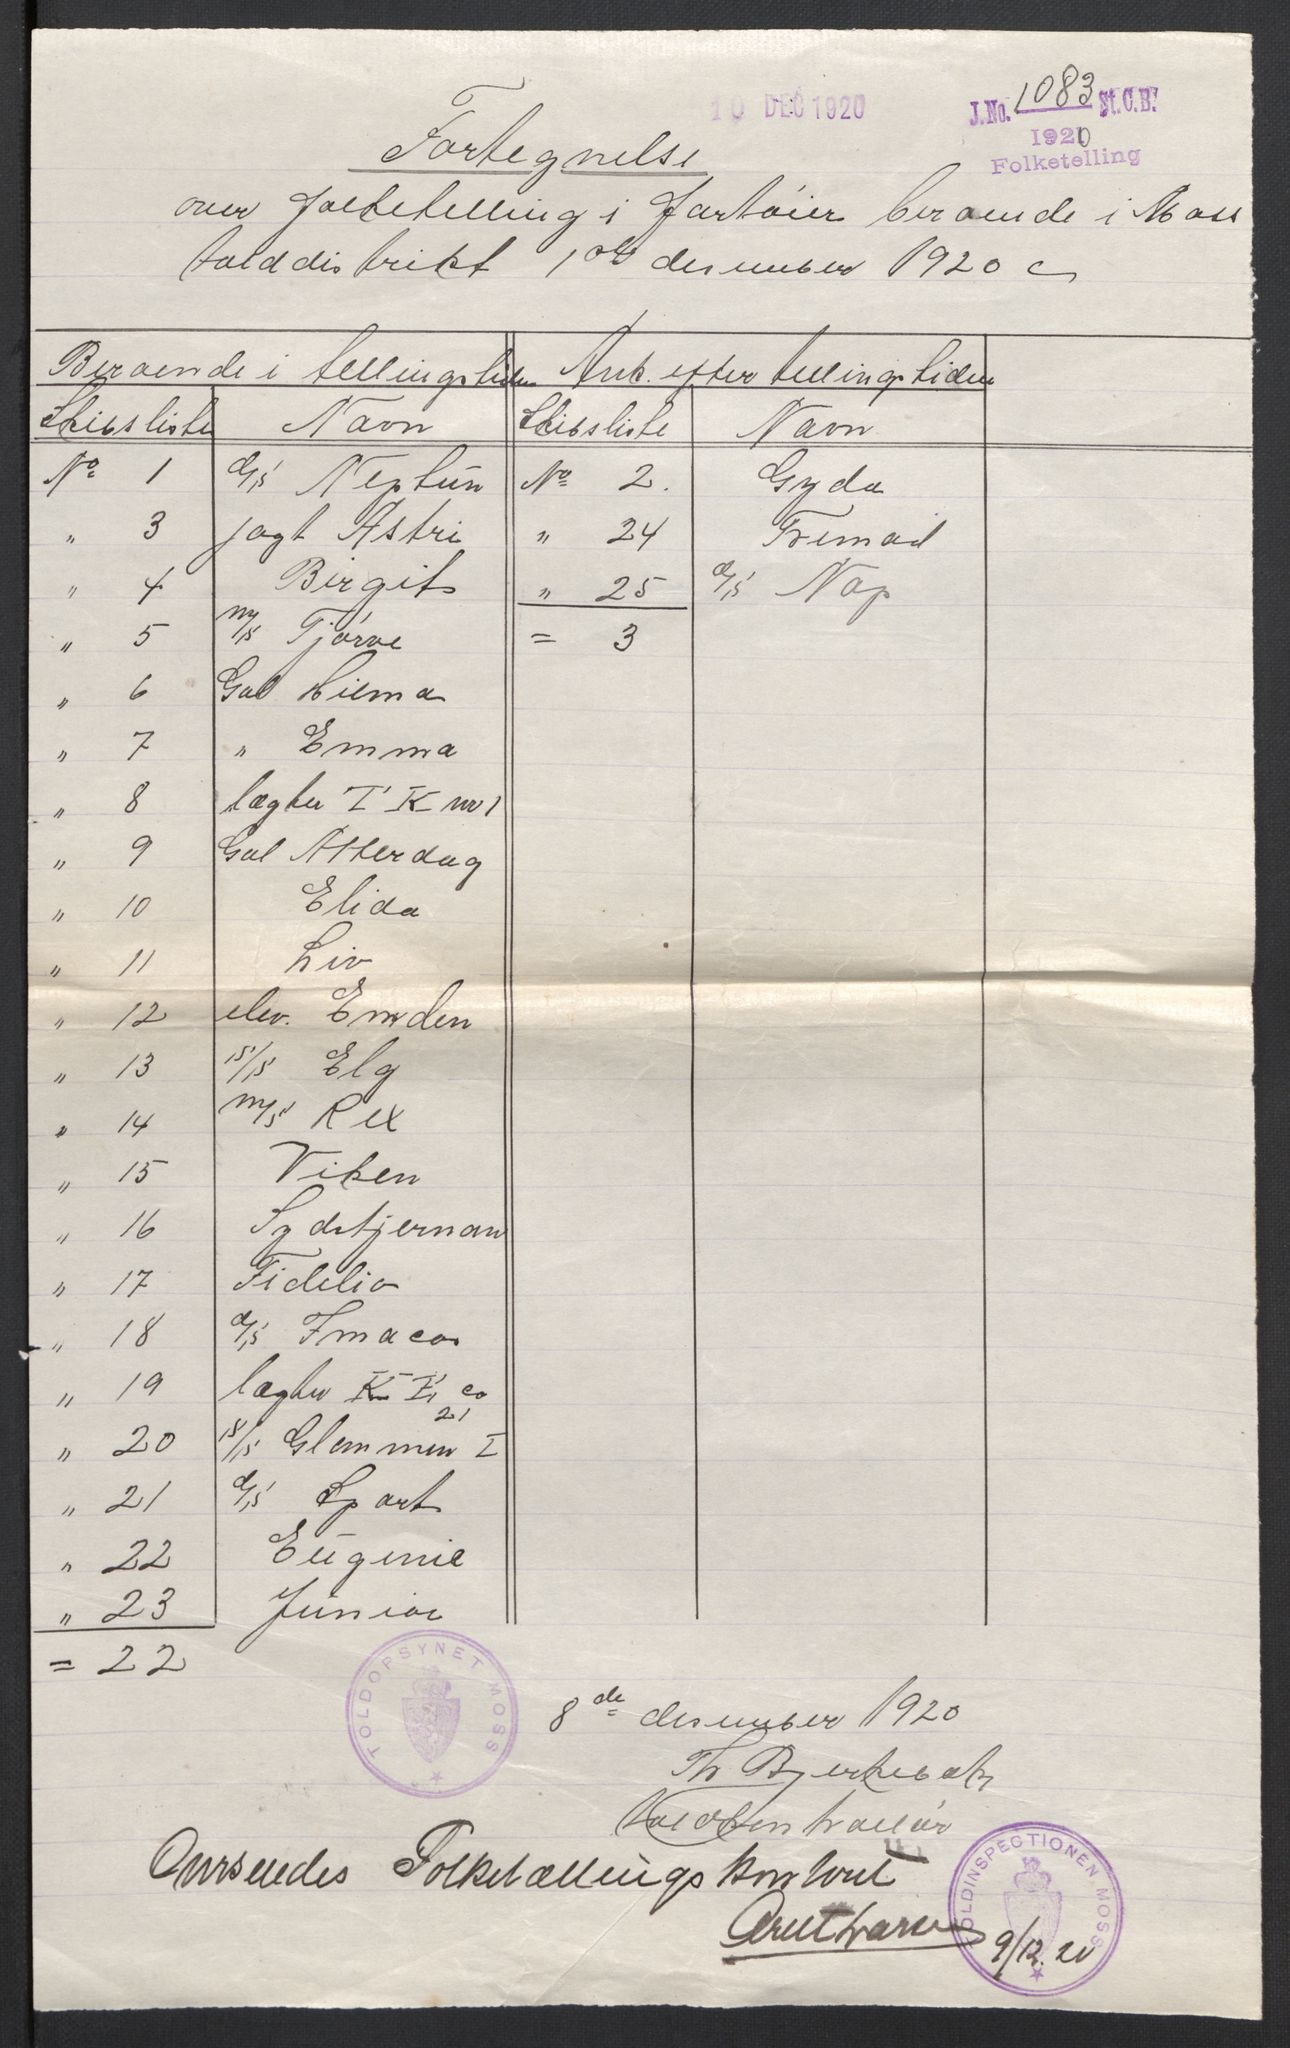 10 DEC 1920
J.No. 1083 St.C.B.
1920
Folketelling
Fortegnelse
over folketelling i fartøier beroende i Moss
tolddistrikt 1ste desember 1920
Beroende i tellingstiden Ank. efter tellingstiden
Skibsliste Navn Skibsliste Navn
No 1 d/s Neptun No 2. Gyda
" 3 jagt Astri " 24 Fremad
" 4 Birgit " 25 d/s Nap
" 5 m/s Tjørve = 3
" 6 Gal Hilma
" 7 " Emma
" 8 lægter T K no 1
" 9 Gal Atterdag
" 10 Elida
" 11 Liv
" 12 elev. Emden
" 13 s/s Elg
" 14 m/s Rex
" 15 Viken
" 16 Sydstjernan
" 17 Fidelio
" 18 d/s Imacos
" 19 lægter K co 21
" 20 s/s Glommen I
" 21 d/s Sport
" 22 Eugenie
" 23 Junior
= 22
TOLDOPSYNET MOSS
8de desember 1920
Th Bjerkebæk
toldkontrollør
Oversendes Folketællingskontoret
TOLDINSPECTIONEN MOSS
9/12.20